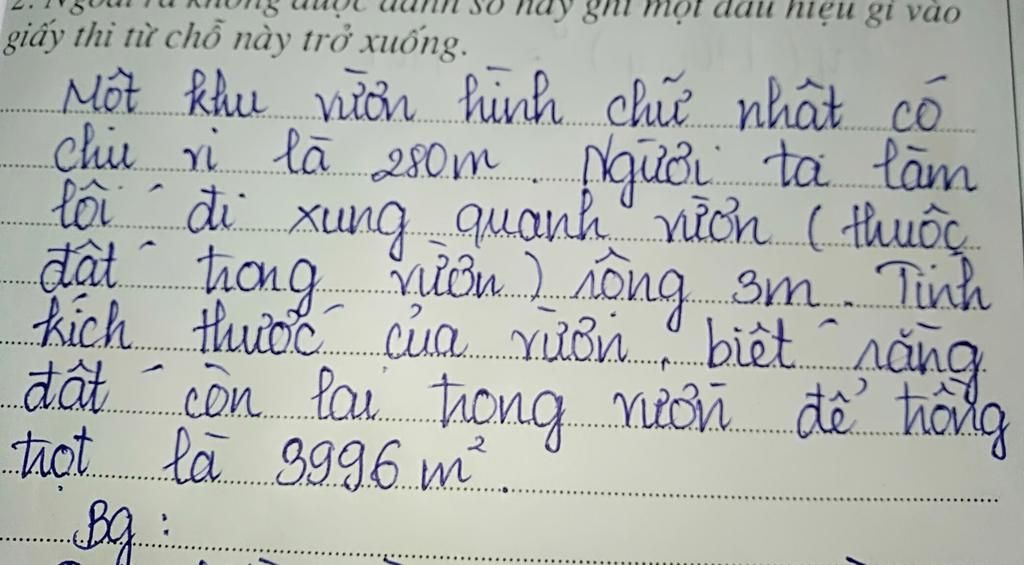 2. Ngoài ra không được đánh số hay ghi một dấu hiệu gì vào
giấy thi từ chỗ này trở xuống.
Một khu vườn hình chữ nhất có
chu vi là 280m. Người ta làm
lối đi xung quanh vườn (thuộc
đất trong vườn) rộng 3m. Tính
kích thước của vườn, biết rằng
đất còn lại trong vườn để trồng
trọt là 3996 m².
Bg: